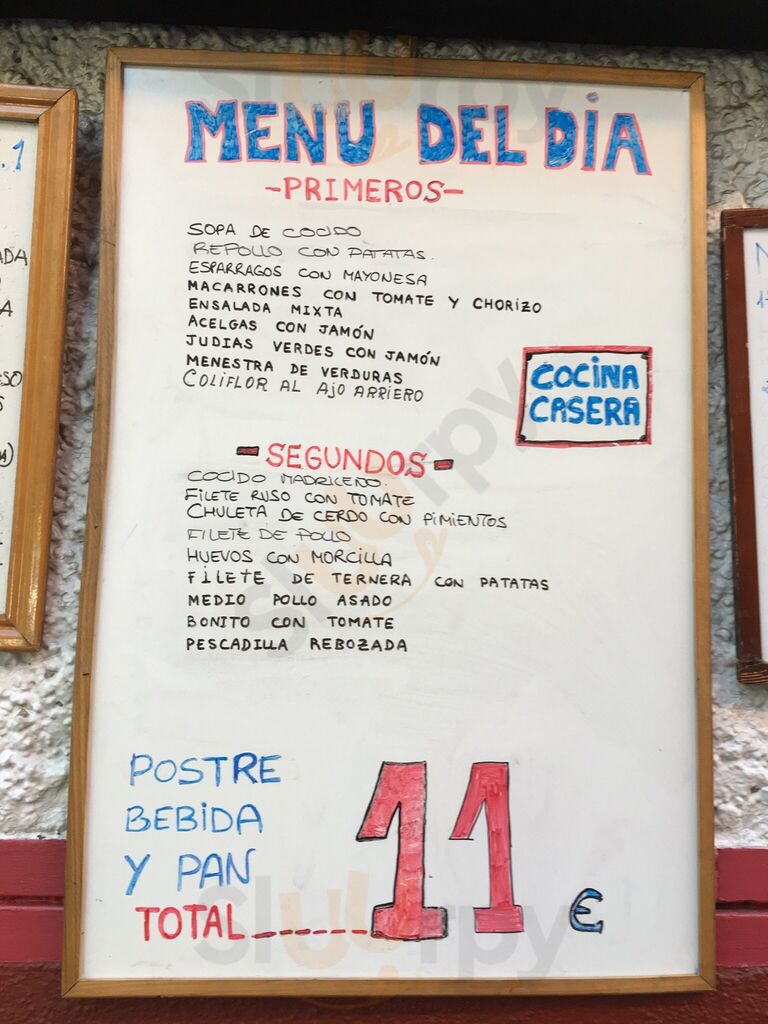 MENU DEL DIA
-PRIMEROS-
SOPA DE COCIDO
REPOLLO CON PATATAS.
ESPARRAGOS CON MAYONESA
MACARRONES CON TOMATE Y CHORIZO
ENSALADA MIXTA
ACELGAS CON JAMÓN
JUDIAS VERDES CON JAMÓN
MENESTRA DE VERDURAS
COLIFLOR AL AJO ARRIERO
COCINA
CASERA
-SEGUNDOS-
COCIDO MADRILEÑO.
FILETE RUSO CON TOMATE
CHULETA DE CERDO CON PIMIENTOS
FILETE DE POLLO
HUEVOS CON MORCILLA
FILETE DE TERNERA CON PATATAS
MEDIO POLLO ASADO
BONITO CON TOMATE
PESCADILLA REBOZADA
POSTRE
BEBIDA
Y PAN
TOTAL------- 11 €
Slurpy